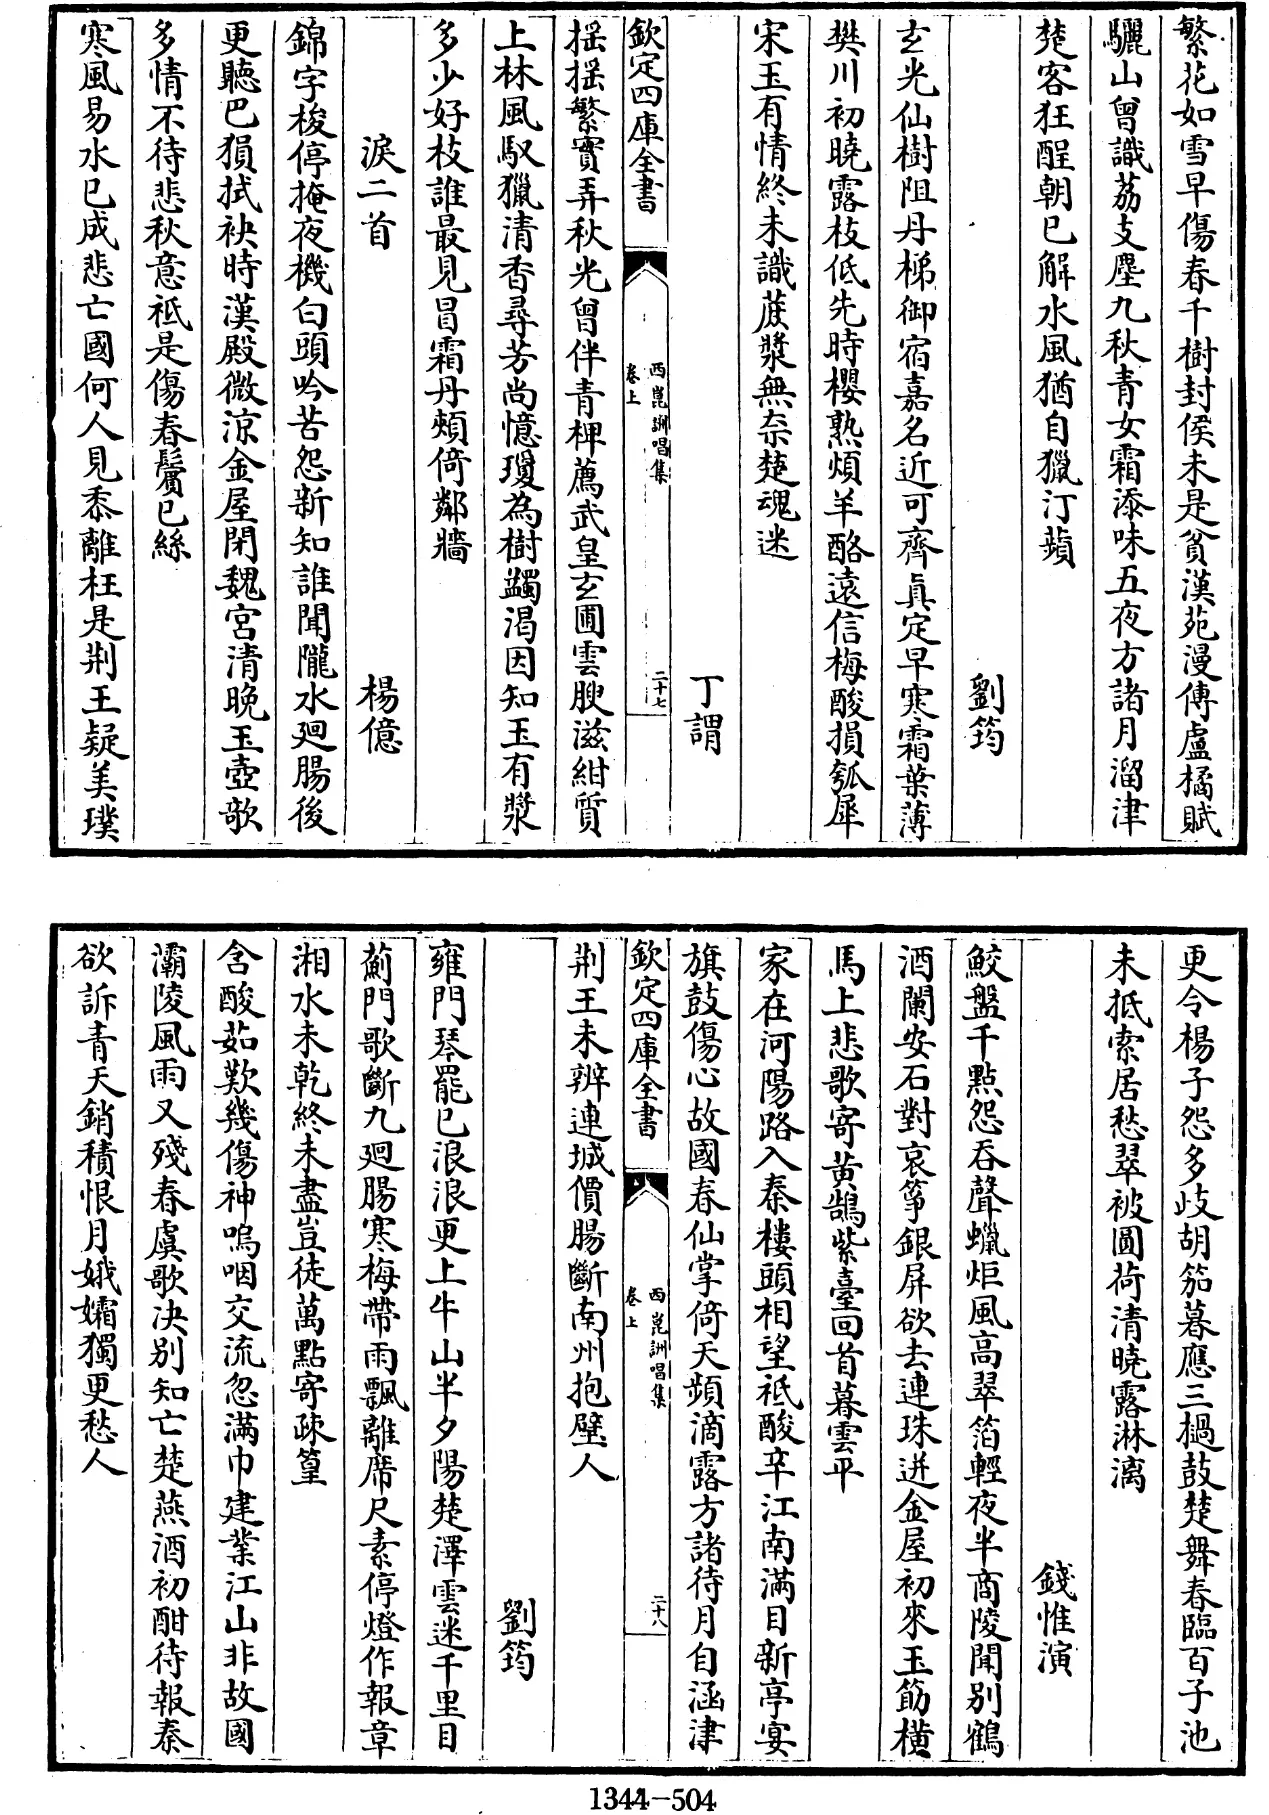 繁花如雪早傷春千樹封侯未是貧漢苑漫傳盧橘賦
驪山曾識荔支塵九秋青女霜添味五夜方諸月溜津
楚客狂酲朝已解水風猶自獵汀蘋
劉筠
玄光仙樹阻丹梯御宿嘉名近可齊真定早寒霜葉薄
樊川初曉露枝低先時櫻熟煩羊酪遠信梅酸損瓠犀
宋玉有情終未識蔗漿無奈楚魂迷
丁謂
欽定四庫全書
西崑詶唱集
卷上
二十七
搖搖繁實弄秋光曾伴青椑薦武皇玄圃雲腴滋紺質
上林風馭獵清香尋芳尚憶瓊為樹蠲渴因知玉有漿
多少好枝誰最見冒霜丹頰倚鄰牆
淚二首
楊億
錦字梭停掩夜機白頭吟苦怨新知誰聞隴水迴腸後
更聽巴猨拭袂時漢殿微涼金屋閉魏宮清曉玉壺歌
多情不待悲秋意祗是傷春鬢已絲
寒風易水已成悲亡國何人見黍離枉是荆王疑美璞
更令楊子怨多歧胡笳暮應三撾鼓楚舞春臨百子池
未抵索居愁翠被圓荷清曉露淋漓
錢惟演
鮫盤千點怨吞聲蠟炬風高翠箔輕夜半商陵聞別鶴
酒闌安石對哀箏銀屏欲去連珠迸金屋初來玉筯橫
馬上悲歌寄黃鵠紫臺回首暮雲平
家在河陽路入秦樓頭相望祗酸辛江南滿目新亭宴
旗鼓傷心故國春仙掌倚天頻滴露方諸待月自涵津
欽定四庫全書
西崑詶唱集
卷上
二十八
荆王未辨連城價腸斷南州抱璧人
劉筠
雍門琴罷已浪浪更上牛山半夕陽楚澤雲迷千里目
薊門歌斷九迴腸寒梅帶雨飄離席尺素停燈作報章
湘水未乾終未盡豈徒萬點寄疎篁
含酸茹歎幾傷神嗚咽交流忽滿巾建業江山非故國
灞陵風雨又殘春虞歌決別知亡楚燕酒初酣待報秦
欲訴青天銷積恨月娥孀獨更愁人
1344-504